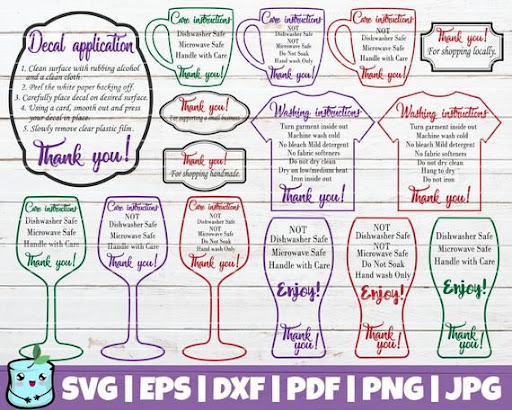 Decal application
1. Clean surface with rubbing alcohol
and a clean cloth.
2. Peel the white paper backing off.
3. Carefully place decal on desired surface.
4. Using a card, smooth out and press
your decal in place.
5. Slowly remove clear plastic film.
Thank you!
Care instructions
Dishwasher Safe
Microwave Safe
Handle with Care
Thank you!
Care instructions
NOT
Dishwasher Safe
NOT
Microwave Safe
Do Not Soak
Hand wash Only
Thank you!
Care instructions
NOT
Dishwasher Safe
Microwave Safe
Handle with Care
Thank you!
Thank you!
For shopping locally.
Thank you!
For supporting a small business
Thank you!
For shopping handmade.
Washing instructions
Turn garment inside out
Machine wash cold
No bleach Mild detergent
No fabric softeners
Do not dry clean
Dry on low/medium heat
Iron inside out
Thank you!
Washing instructions
Turn garment inside out
Machine wash cold
No bleach Mild detergent
No fabric softeners
Do not dry clean
Hang to dry
Do not iron
Thank you!
Care instructions
Dishwasher Safe
Microwave Safe
Handle with Care
Thank you!
Care instructions
NOT
Dishwasher Safe
Microwave Safe
Handle with Care
Thank you!
Care instructions
NOT
Dishwasher Safe
NOT
Microwave Safe
Do Not Soak
Hand wash Only
Thank you!
NOT
Dishwasher Safe
Microwave Safe
Handle with Care
Enjoy!
Thank you!
NOT
Dishwasher Safe
NOT
Microwave Safe
Do Not Soak
Hand wash Only
Enjoy!
Thank you!
Dishwasher Safe
Microwave Safe
Handle with Care
Enjoy!
Thank you!
SVG | EPS | DXF | PDF | PNG | JPG